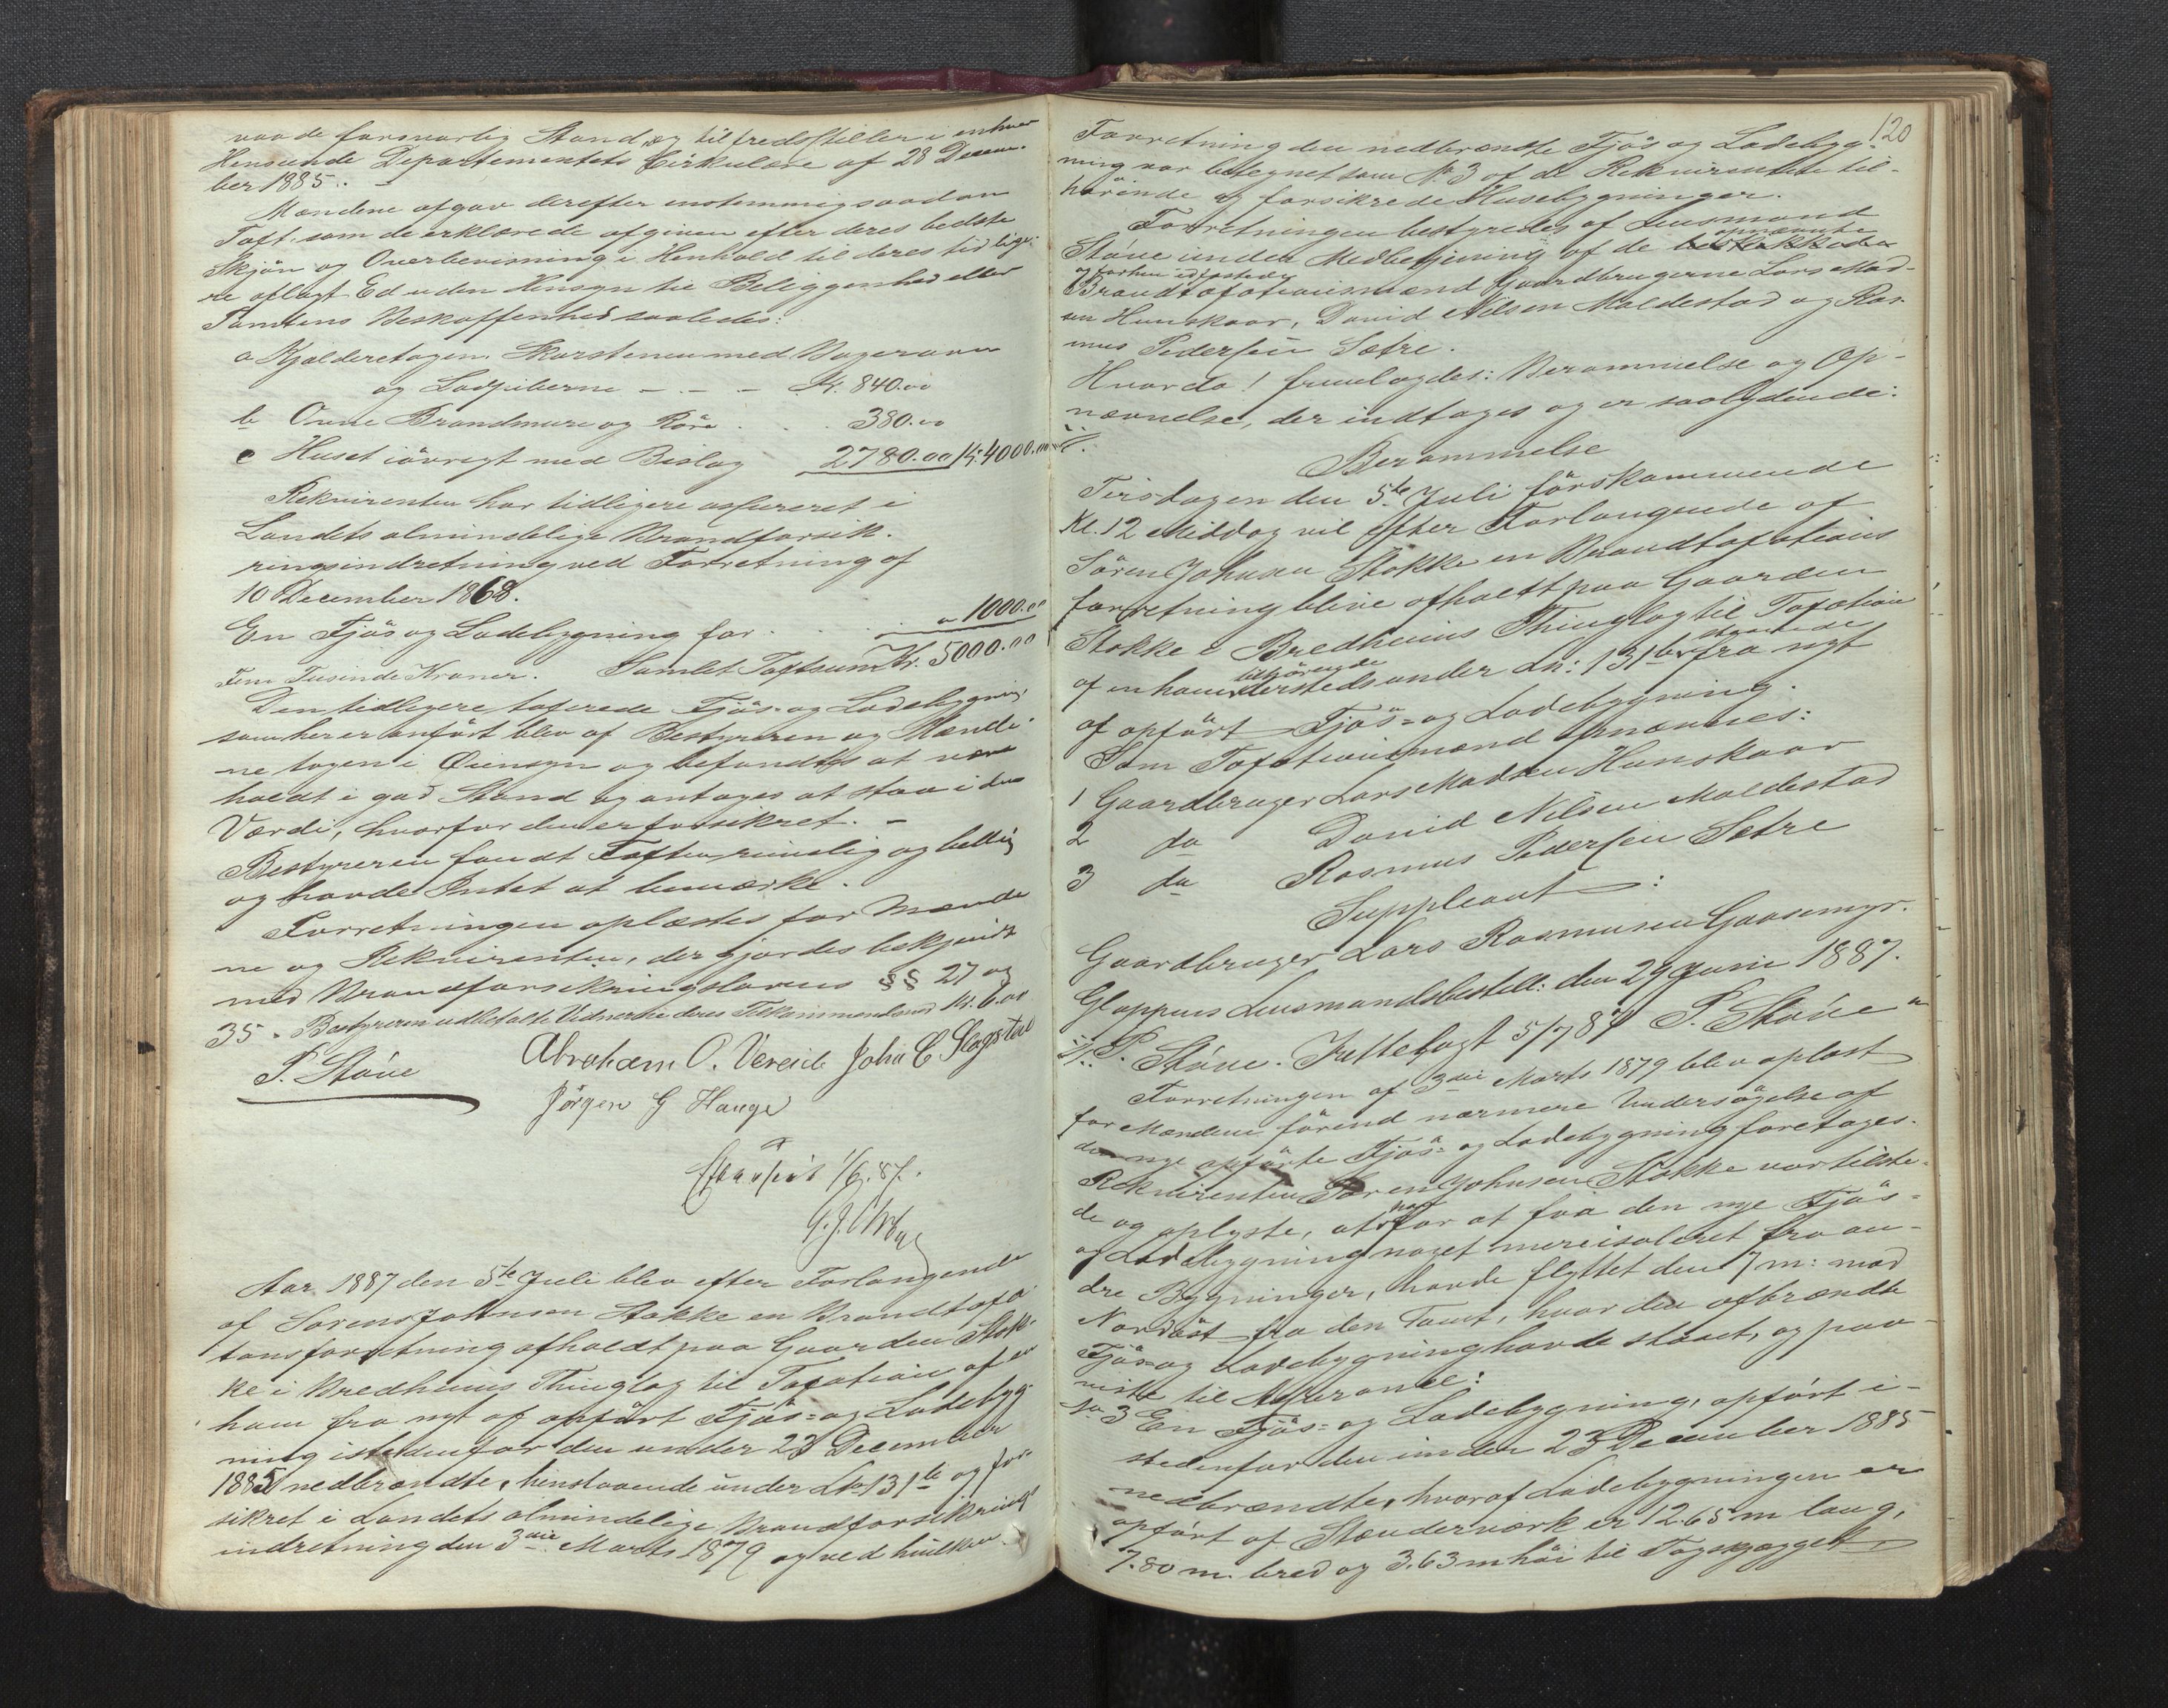 vaade forsvarlig Stand, og tilfredsstiller i enhver
Henseende Departementets Cirkulære af 28 Decem-
ber 1885. -
Mændene afgav derefter enstemmig saadan
Taxt, som de erklærede afgiven efter deres bedste
Skjøn og Overbevisning i Henhold til deres tidlige-
re aflagt Ed uden Hensyn til Beliggenhed eller
Tomtens Beskaffenhed saaledes:
a Kjælderetagen, Skorstenen med Bagerovn
og Lodpiberne - - - Kr. 840.00
b Ovne Brandmure og Rör . . . 380.00
c Huset iövrigt med Bislag 2780.00 Kr. 4000.00
Rekvirenten har tidligere assureret i
Landets almindelige Brandforsik-
ringsindretning ved Forretning af
10 December 1868.
En Fjös og Ladebygning for . . . . " 1000.00
Fem Tusinde Kroner. Samlet Taxtsum Kr. 5000.00
Den tidligere taxerede Fjös- og Ladebygning
som her er anført blev af Bestyreren og Mænde-
ne tagen i Öiensyn og befandtes at være
holdt i god Stand og antages at staa i den
Værdi, hvorfor den er forsikret. -
Bestyreren fandt Taxten rimelig og billig
og havde Intet at bemærke.
Forretningen oplæstes for Mænde
ne og Rekvirenten, der gjordes bekjendt
med Brandforsikringslovens §§ 27 og
35. Bestyreren udbetalte Vidnerne deres Tilkommende med Kr. 6.00
P. Stöve Abraham O. Vereide John C Slagstad
Jörgen G Hauge
Expederet 1/6.87.
Aar 1887 den 5te Juli blev efter Forlangende
af Sørens Johnsen Stokke en Brandtaxa-
tionsforretning afholdt paa Gaarden Stok-
ke i Bredheims Thinglag til Taxation af en
ham fra nyt af opfört Fjös- og Ladebyg-
ning istedenfor den under 23 December
1885 nedbrændte, henstaaende under Lno 131 b og for-
sikret i Landets almindelige Brandforsikrings-
indretning den 3die Marts 1879 og ved hvilken
120
Forretning den nedbrændte Fjös og Ladebyg-
ning var betegnet som No 3 af de Rekvirenten til-
hörende og forsikrede Husebygninger.
Forretningen bestyredes af Lensmand
opnævnte
Stöve under Medbetjening af de
og forhen edfæstede
Brandtaxationsmænd Gaardbrugerne Lars Mad-
sen Hunskaar, David Nilsen Maldestad og Ras-
mus Pedersen Sætre.
Hvorda! fremlagdes: Berammelse og Op-
nævnelse, der indtages og er saalydende:
Berammelse
Tirsdagen den 5te Juli förstkommende
Kl. 12 Middag vil efter Forlangende af
Sören Johnsen Stokke en Brandtaxations
forretning blive afholdt paa Gaarden
Stokke i Bredheims Thinglag til Taxation
tilhörende staaende
af en ham dersteds under Ln: 131 b fra nyt
af opfört Fjös- og Ladebygning.
Som Taxationsmænd opnævnes:
1 Gaardbruger Lars Madsen Hunskaar
2 do David Nilsen Maldestad
3 do Rasmus Pedersen Sætre
Suppleant:
Gaardbruger Lars Rasmusen Gaasemyr.
Gloppens Lensmandsbestill: den 29 Juni 1887.
P. Stöve. Fremlagt 5/7 87 P. Stöve"
Forretningen af 3die Marts 1879 blev oplæst
for Mændene förend nærmere Undersögelse af
den nye opförte Fjös- og Ladebygning foretoges.
Rekvirenten Sören Johnsen Stokke var tilste-
han
de og oplyste, at for at faa den nye Fjös-
og Ladebygning noget mere isoleret fra an-
dre Bygninger, havde flyttet den 7 m: mod
Nordöst fra den Tomt, hvor den afbrændte
Fjös- og Ladebygning havde staaet, og paa-
viste til Assurance:
No 3 En Fjös- og Ladebygning, opfört i-
stedenfor den under 23 December 1885
nedbrændte, hvoraf Ladebygningen er
opfört af Stænderværk er 12.65 m lang,
7.80 m. bred og 3.63 m höi til Tagskjægget